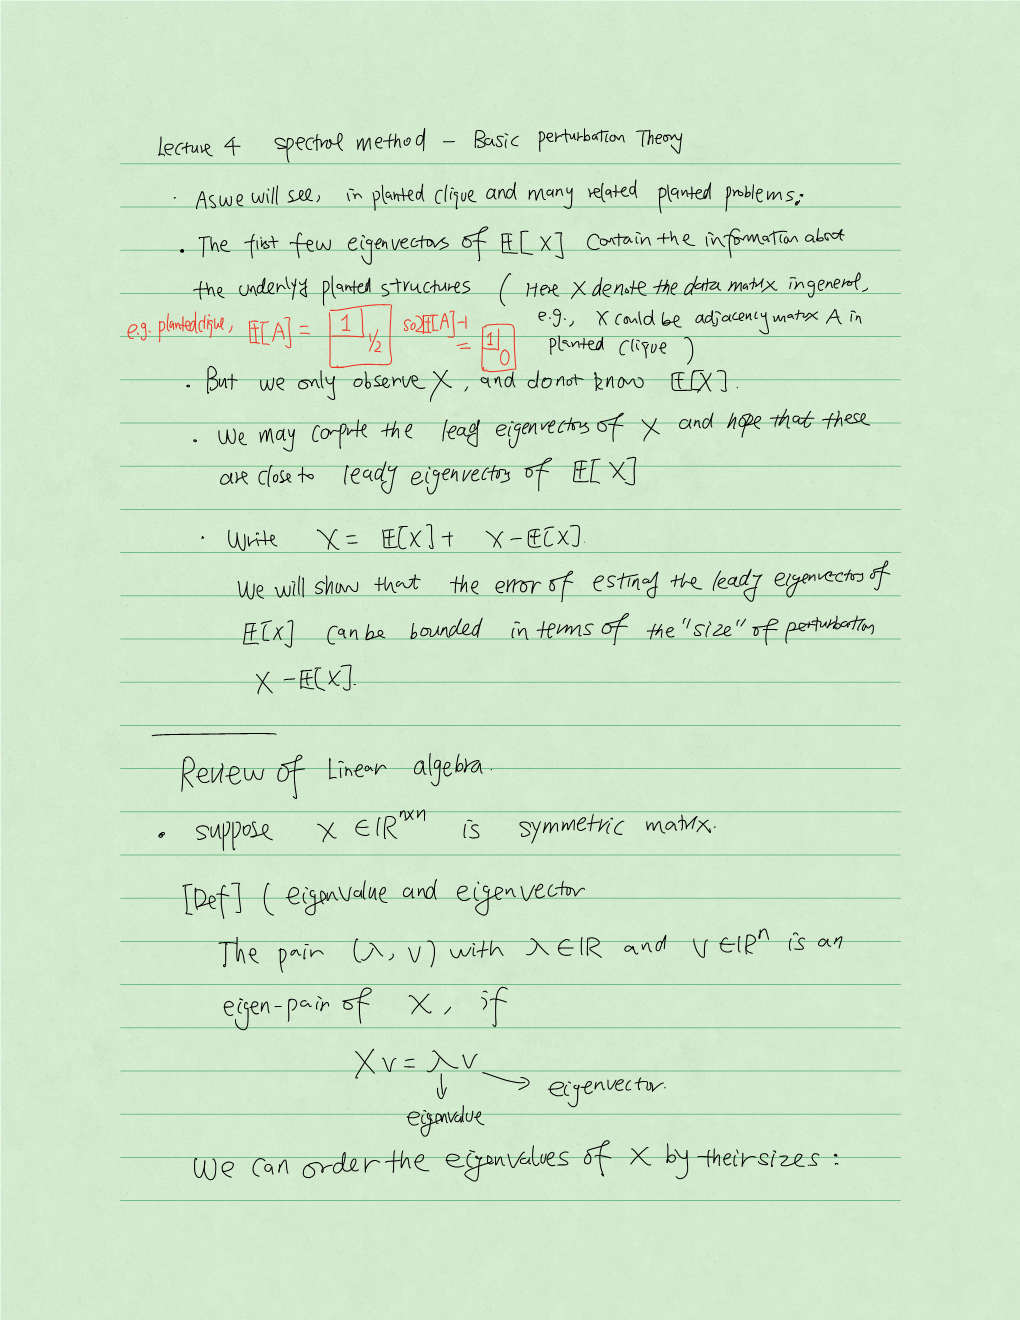 Lecture 4 spectral method – Basic perturbation Theory
· As we will see, in planted clique and many related planted problems:
· The first few eigenvectors of E[X] contain the information about
the underlyg planted structures ( Here X denote the data matrix in general,
e.g., X could be adjacency matrix A in
planted clique )
e.g. planted clique, E[A] = 1 1/2 so 2E[A]-1 = 1 0
· But we only observe X, and do not know E[X].
· We may compute the leadg eigenvectors of X and hope that these
are close to leadg eigenvectors of E[X]
· Write X = E[X] + X – E[X].
We will show that the error of estimatg the leadg eigenvectors of
E[X] can be bounded in terms of the "size" of perturbation
X – E[X].
Review of Linear algebra.
· suppose X ∈ IR^{n×n} is symmetric matrix.
[Def] ( eigenvalue and eigenvector
The pair (λ, v) with λ ∈ IR and v ∈ IR^n is an
eigen-pair of X, if
Xv = λv
→ eigenvector.
↓
eigenvalue
We can order the eigenvalues of X by their sizes :